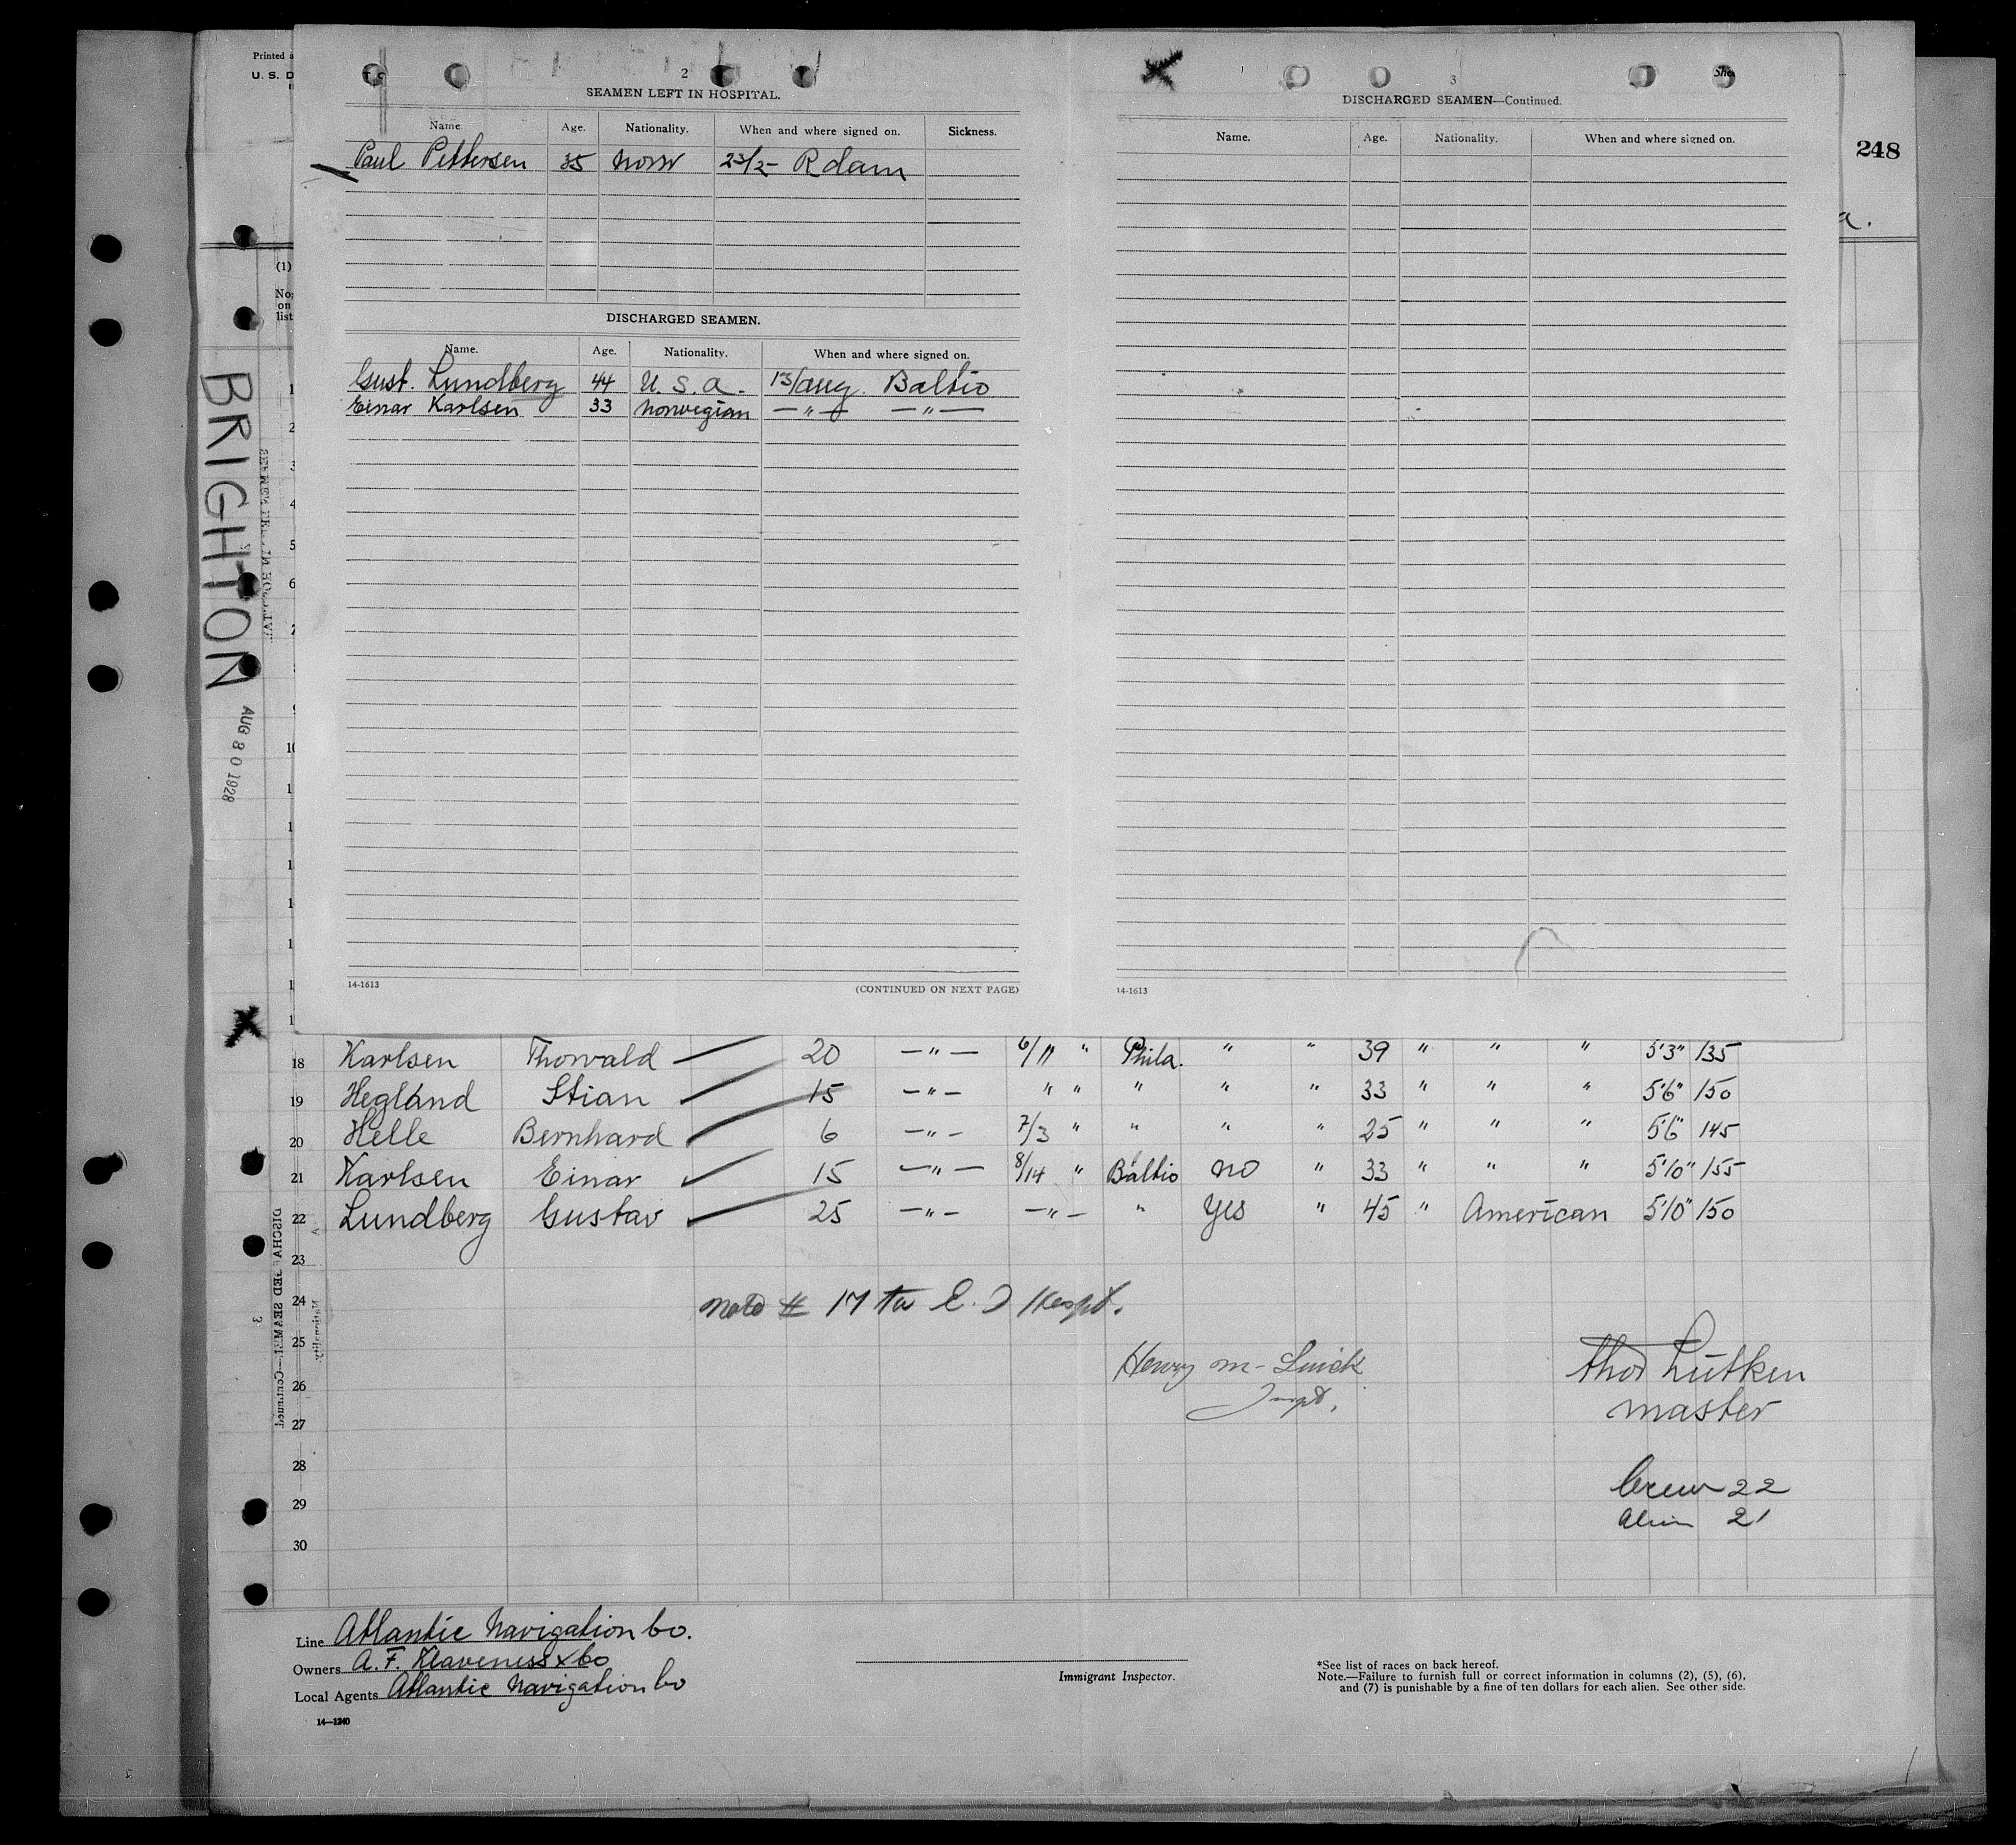 Printed
U. S. D
248
a.
(1)
No.
on
list
BRIGHTON
AUG 30 1928
2
SEAMEN LEFT IN HOSPITAL.
Name. Age. Nationality. When and where signed on. Sickness.
Paul Pettersen 35 Norw 23/2- Rdam
DISCHARGED SEAMEN.
Name. Age. Nationality. When and where signed on.
Gust. Lundberg 44 U.S.A. 13/Aug. Baltio
Einar Karlsen 33 Norwegian —"— —"—
14-1613 (CONTINUED ON NEXT PAGE)
3
DISCHARGED SEAMEN—Continued.
Name. Age. Nationality. When and where signed on.
14-1613
18 Karlsen Thorvald 20 —"— 6/11 " Phila. " " 39 " " " 5'3" 135
19 Hegland Stian 15 —"— " " " " " 33 " " " 5'6" 150
20 Helle Bernhard 6 —"— 7/3 " " " " 25 " " " 5'6" 145
21 Karlsen Einar 15 —"— 8/14 " Baltio no " 33 " " " 5'10" 155
22 Lundberg Gustav 25 —"— —"— " Yes " 45 " American 5'10" 150
23
24 Note # 17 to E. I Hospt.
25
Henry M- Luick Thos Lütken
26
Inspt. Master
27
28
Crew 22
29
Alien 21
30
Line Atlantic Navigation Co.
Owners A. F. Klaveness & Co
Local Agents Atlantic Navigation Co
14—1240
Immigrant Inspector.
*See list of races on back hereof.
Note.—Failure to furnish full or correct information in columns (2), (5), (6),
and (7) is punishable by a fine of ten dollars for each alien. See other side.